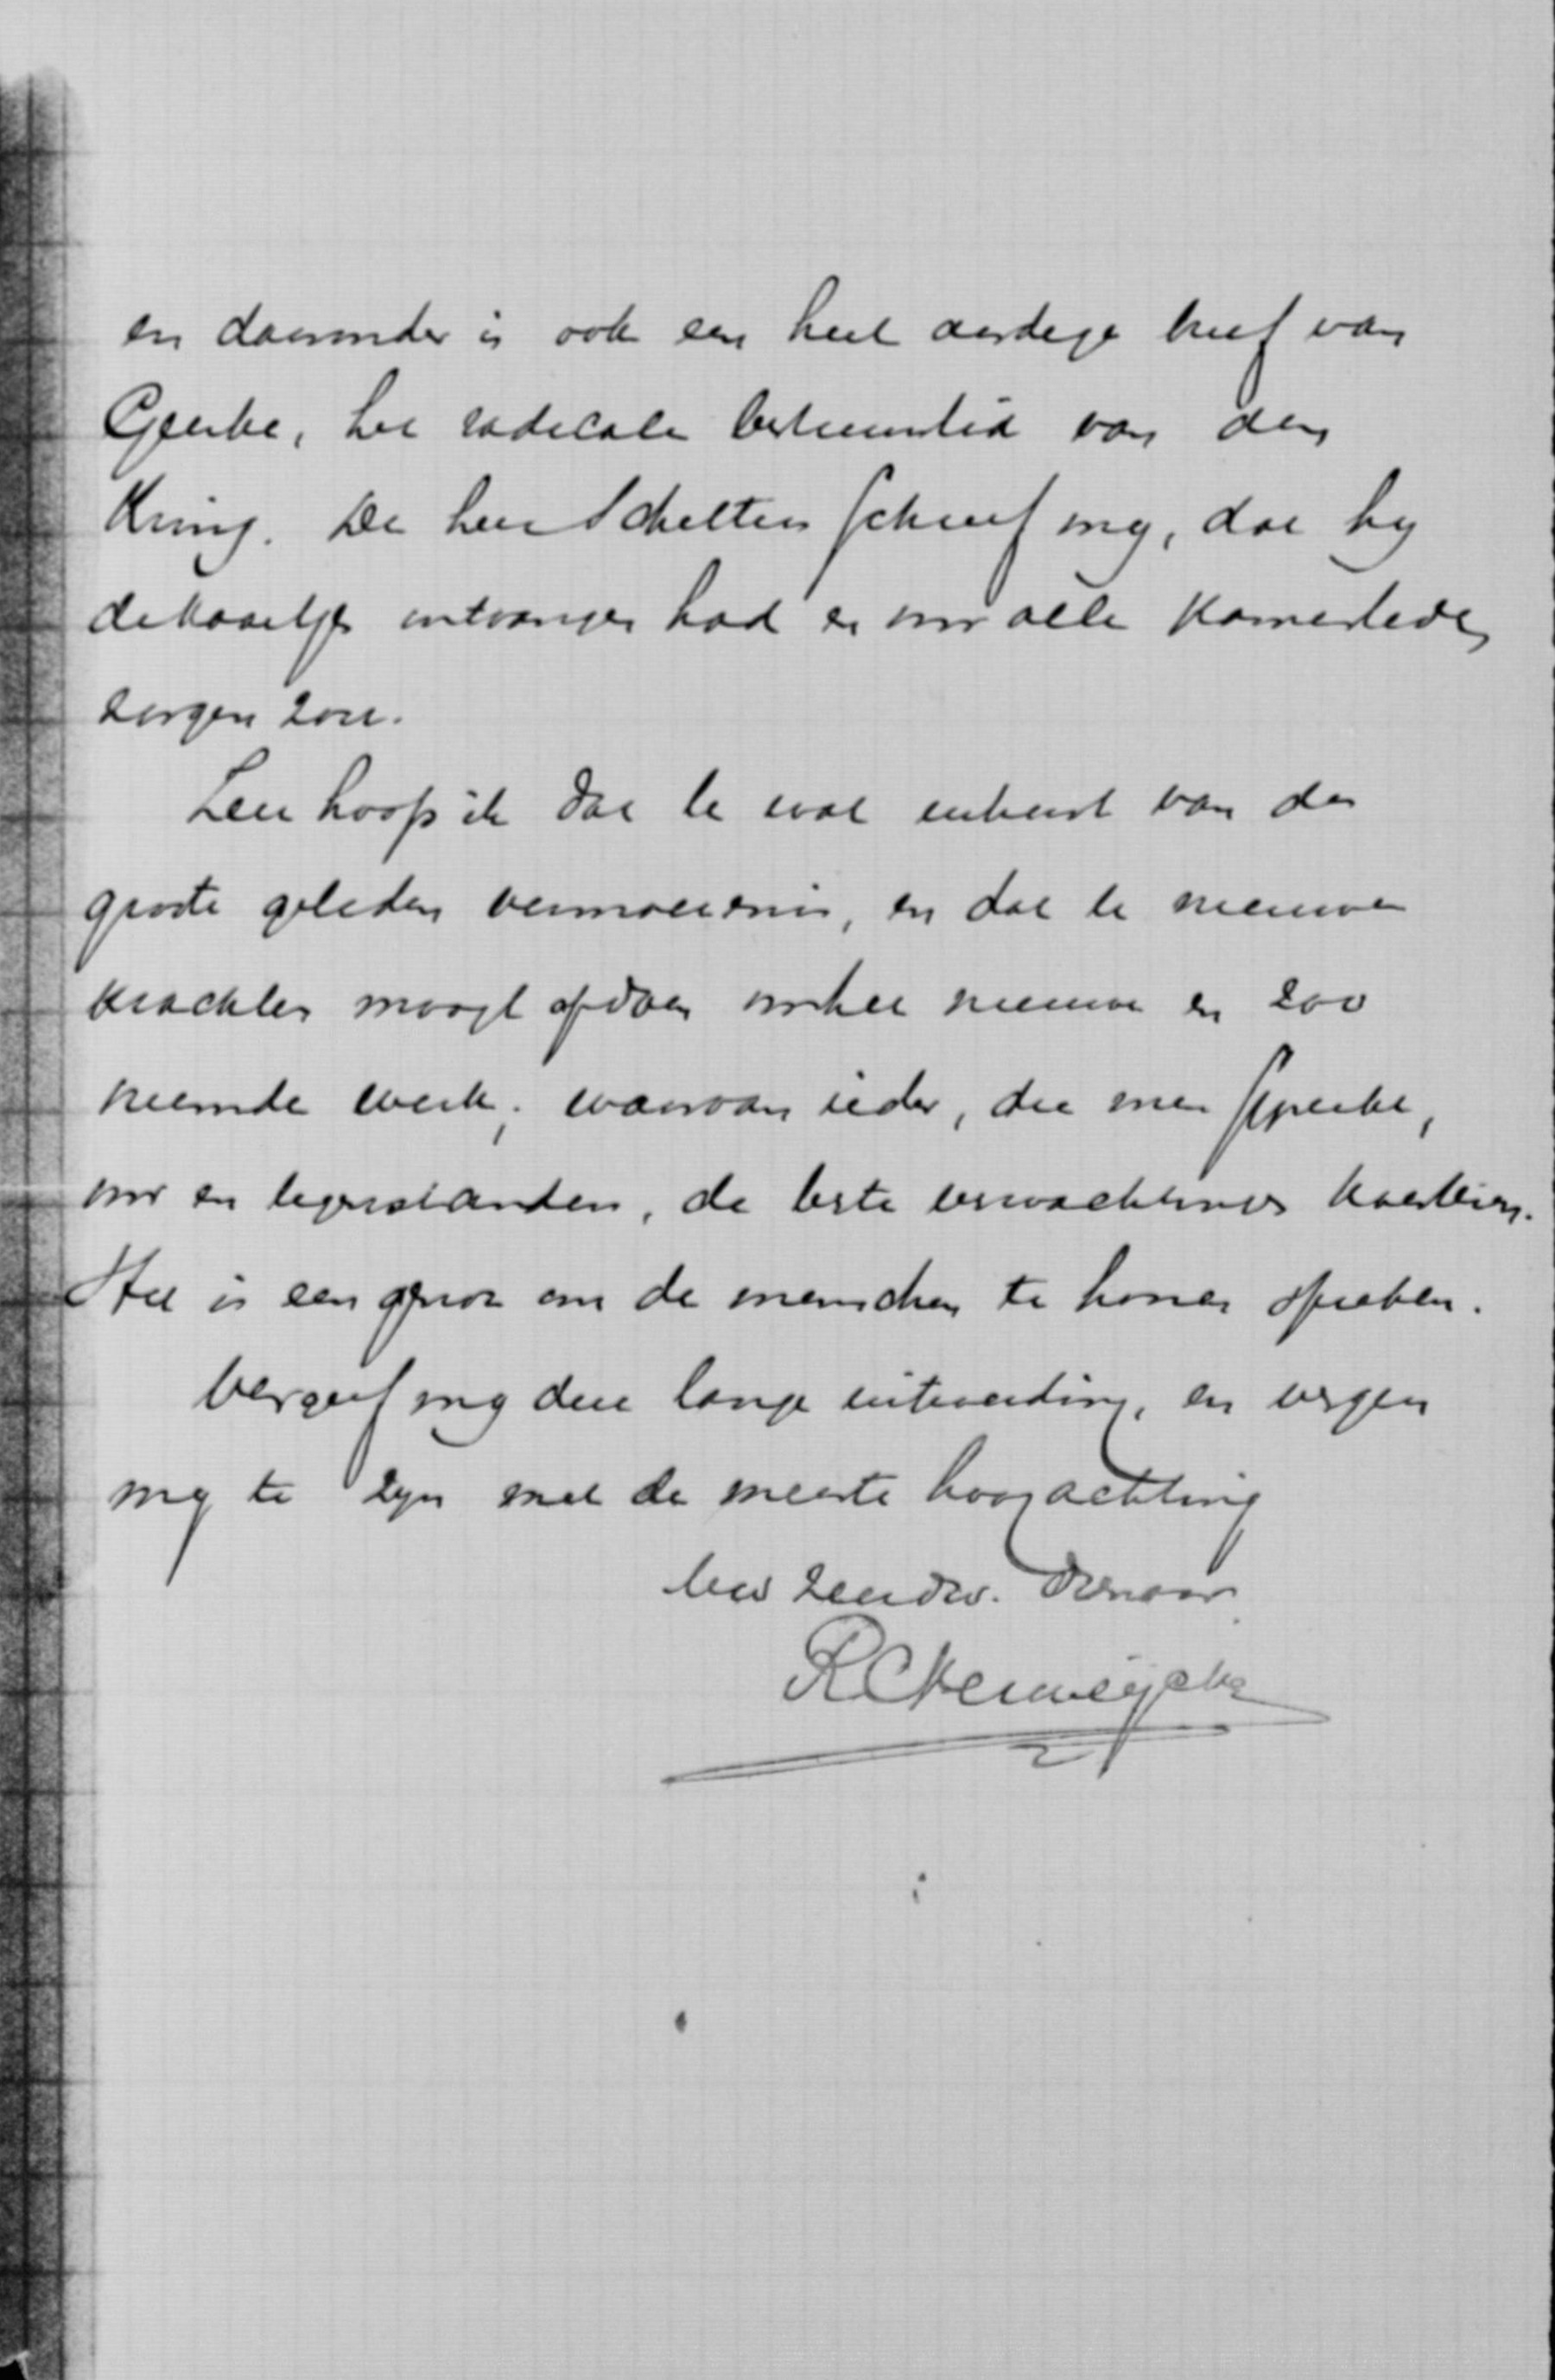 en daaronder is ook een heel aardige brief van
Gerke, het radicale bestuurslid van den
Kring. De heer Scheltens schreef my, dat hy
de kaartjes ontvangen had en voor alle Kamerleden
zorgen zou.
Zeer hoop ik dat U wat uitrust van de
groote geleden vermoeienis, en dat U nieuwe
krachten moogt opdoen voor het nieuwe en zoo
werk, waarvan ieder, die men spreekt,
voor en tegenstanders, de beste verwachtingen koesteren.
Het is een genot om de menschen te hooren spreken.
Vergeef my deze lange uitweiding, en
my te zyn met de meeste hoogachting
Uw zeer dw. dienaar